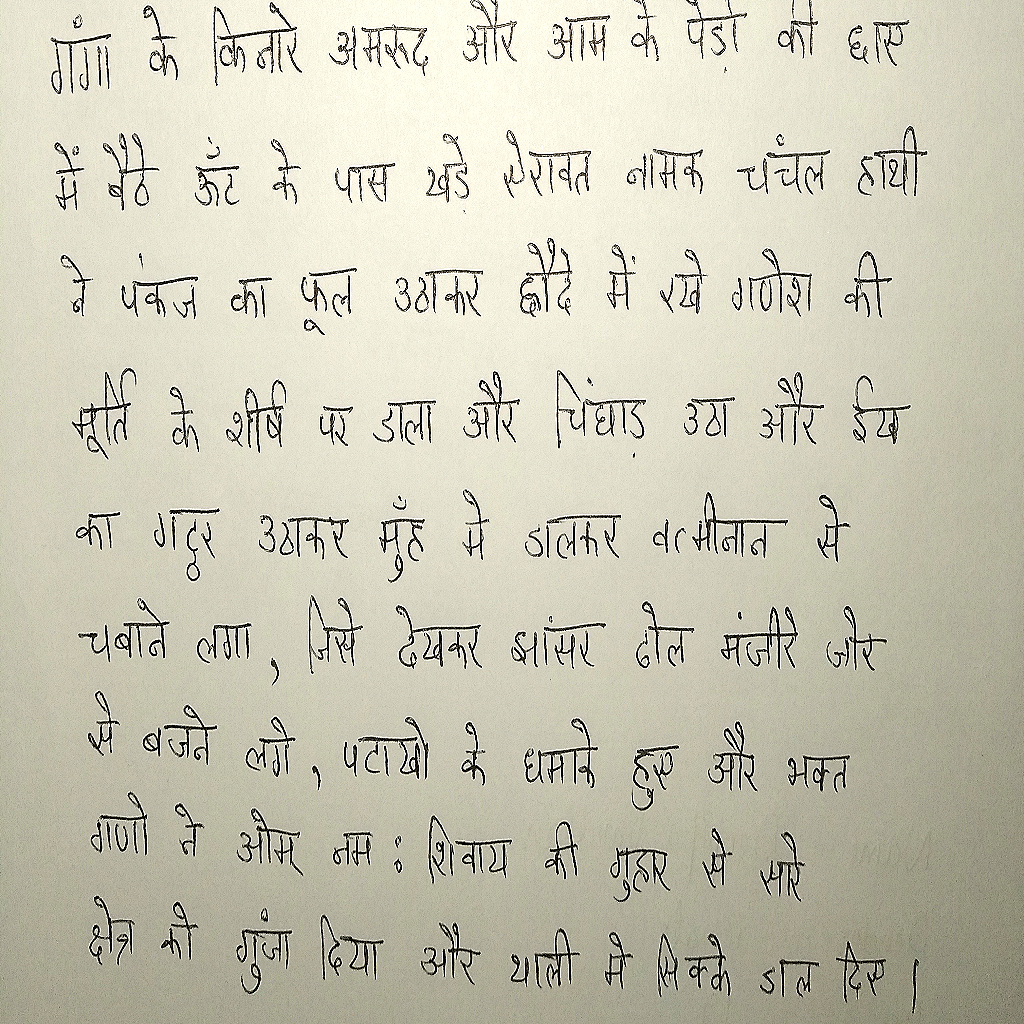 गंगा के किनारे अमरूद और आम के पेड़ो की छाए
में बैठे ऊँट के पास खड़े ऐरावत नामक चंचल हाथी
ने पंकज का फूल उठाकर हौदे में रखे गणेश की
मूर्ति के शीर्ष पर डाला और चिंघाड़ उठा और ईख
का गट्ठर उठाकर मुँह मे डालकर से
चबाने लगा, जिसे देखकर झांसर ढोल मंजीरे जोर
से बजने लगे, पटाखो के धमाके हुए और भक्त
गणो ने ओम् नम : शिवाय की गुहार से सारे
क्षेत्र को गुंजा दिया और थाली मे सिक्के डाल दिए।